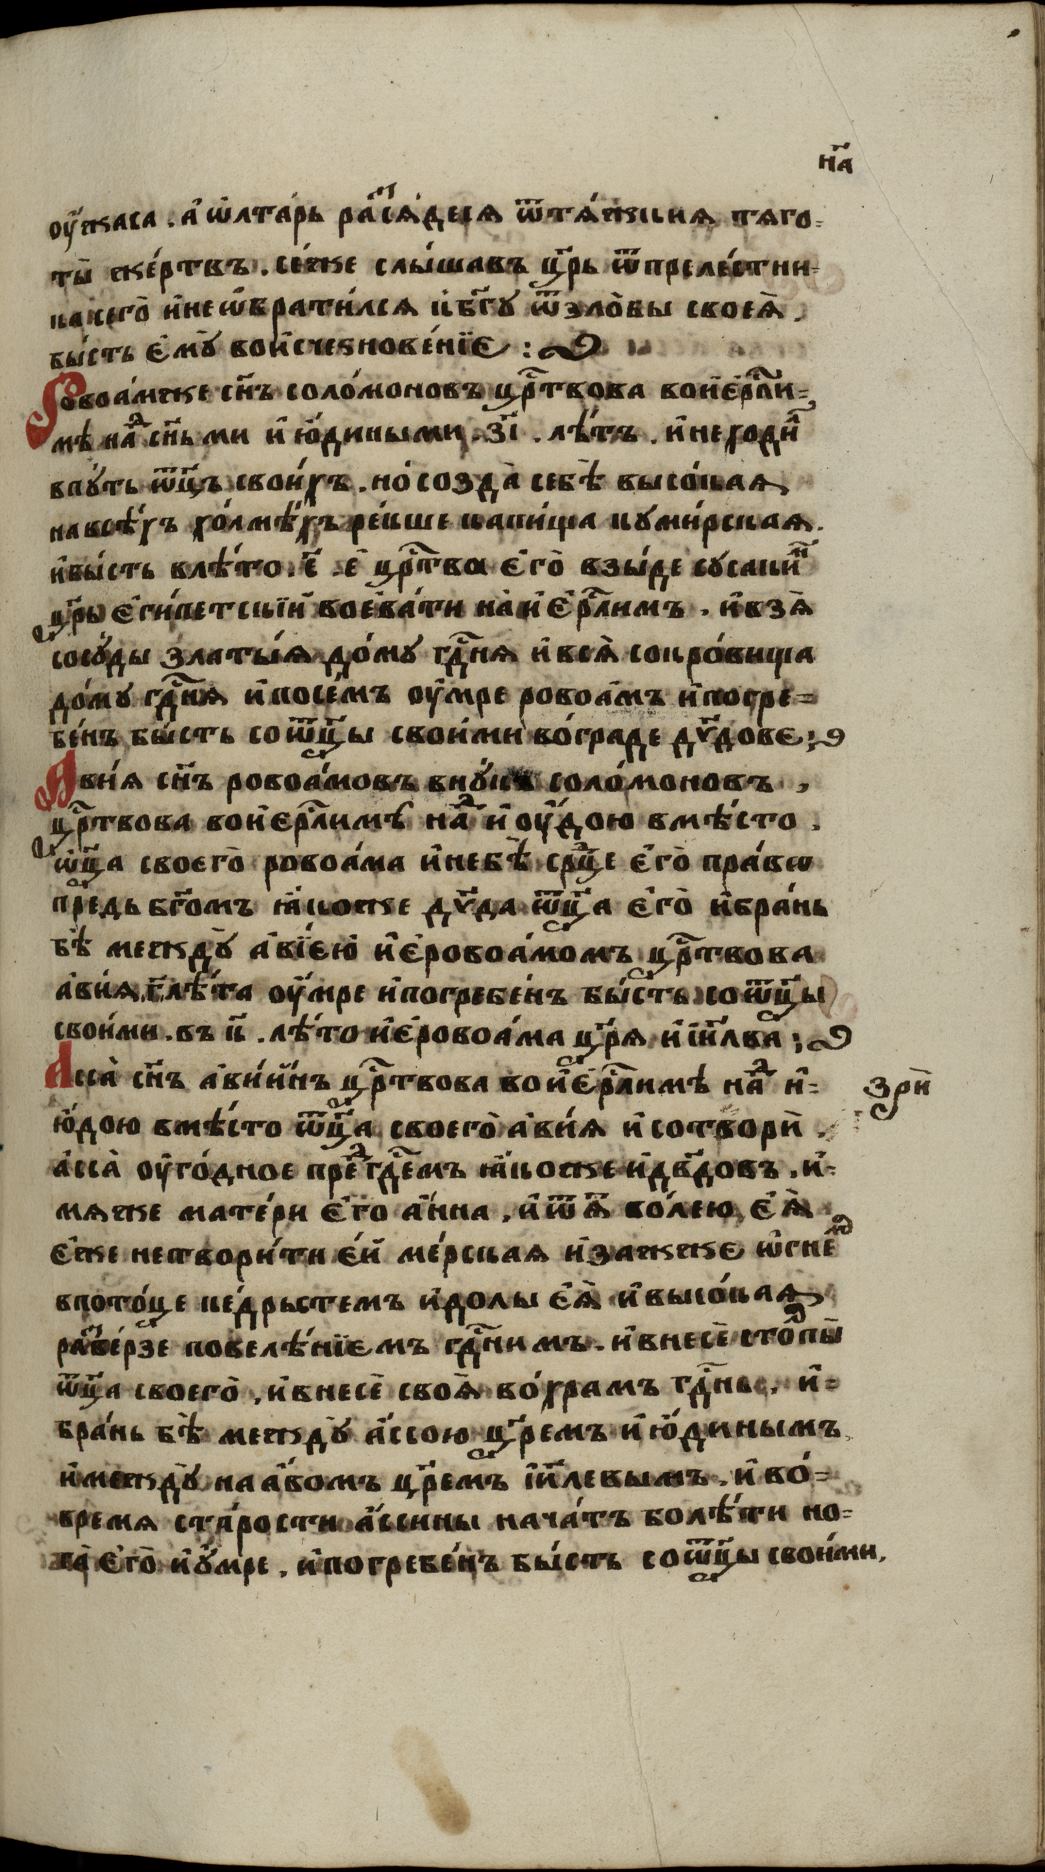 н҃а
оу҆жаса . а҆ ѡ҆лта́рь ра́сѧ́десѧ ѿтѧ́жкиѧ тѧго-
ты̀ же́ртвъ . се́же слы́шавъ цр҃ь ѿпреле́стни-
ка сего̀ и҆неѡ҆брати́лсѧ къбг҃у ѿзло́бы своеѧ̀ .
бы́сть є҆мꙋ̀ вои҆счезнове́нїє :
Ровоа́мже сн҃ъ соло́моновъ црт҃вова воі҆ер҃ли-
мѣ на́д сн҃ьми и҆ ю҆́диными . з҃і . лѣ́тъ . и҆неходи́
впу́ть ѿц҃ъ свои́хъ . но́ созда̀ себѣ̀ высо́каѧ
навсѣ́хъ хо́лмѣхъ ре́кше капи́ща куми́рскаѧ .
и҆бы́сть влѣ́то . є҃ . е҆ црт҃ва є҆го̀ взы́де сусаки́м
цр҃ь є҆ги́петскїй воева́ти на и҆є҆р҃лимъ . и҆взѧ̀
сосу́ды златы́ѧ до́му гдн҃ѧ и҆всѧ̀ сокро́вища
до́му гдн҃ѧ и҆посе́мъ оу҆́мре ровоа́мъ и҆погре-
бе́нъ бы́сть соѿц҃ы свои́ми во́граде дв҃дове ;
Авиѧ сн҃ъ ровоа́мовъ вну́къ соло́моновъ ,
црт҃вова вои҆ер҃лимѣ на́д и҆оу҆́дою вмѣ́сто .
ѡ҆ц҃а своего̀ ровоа́ма и҆небѣ̀ срц҃е є҆го̀ пра́вѡ
предь бг҃омъ ꙗ҆́коже дв҃да ѿц҃а є҆го̀ и҆бра́нь
бѣ̀ междꙋ̀ а҆вїе́ю и҆є҆ровоа́момъ црт҃вова
а҆ви́ѧ г҃ лѣ́та оу҆́мре и҆погребе́нъ бы́сть соѿц҃ы
свои́ми . въ к҃ . лѣ́то и҆є҆ровоа́ма цр҃ѧ и҆ і҆и҃лва ;
Асса̀ сн҃ъ а҆ви́инъ црт҃вова вои҆є҆р҃лимѣ на́д и҆-
зрѝ
ю҆́дою вмѣ́сто ѿц҃а своего̀ а҆ви́ѧ и҆ сотворѝ .
а҆сса̀ оу҆го́дное пре́д гд҃емъ ꙗ҆́коже и҆ дв҃довъ . и҆-
мѧже ма́тери є҆го̀ а҆́нна , и҆ ѿѧ̀ во́лею є҆ѧ̀
є҆́же нетвори́ти є҆́й ме́рскаѧ и҆ зажже ѡ҆гне́м
впото́це ке́дрьстемъ и҆́долы є҆ѧ̀ и҆ высо́каѧ
разве́рзе повелѣ́нїемъ гдн҃имъ . и҆внесѐ столпы̀
ѿц҃а своего̀ , и҆внесѐ своѧ̀ во́храмъ гдн҃ь , и҆-
бра́нь бѣ̀ междꙋ̀ а҆́ссою цр҃емъ и҆ ю҆́динымъ
и҆междꙋ̀ наа́вомъ цр҃емъ і҆и҃левымъ . и҆ во́-
времѧ ста́рости а҆́ссины нача́тъ болѣ́ти но-
га̀ є҆го̀ и҆ у҆́мре . и҆погребе́нъ бы́сть соѿц҃ы свои́ми .